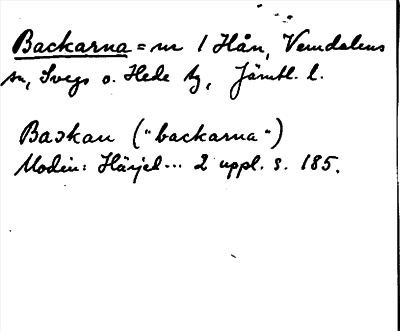 Backarna = m / Hån, Vemdalens
sn, Svegs o. Hede tg, Jämtl. l.
Backan ("backarna")
Modin: Härjed... 2 uppl. s. 185.